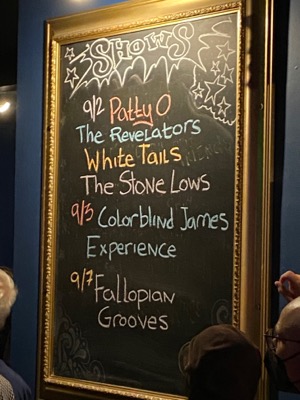 Shows
9/2 Patty O
The Revelators
White Tails
The Stone Lows
9/3 Colorblind James
Experience
9/7 Fallopian
Grooves